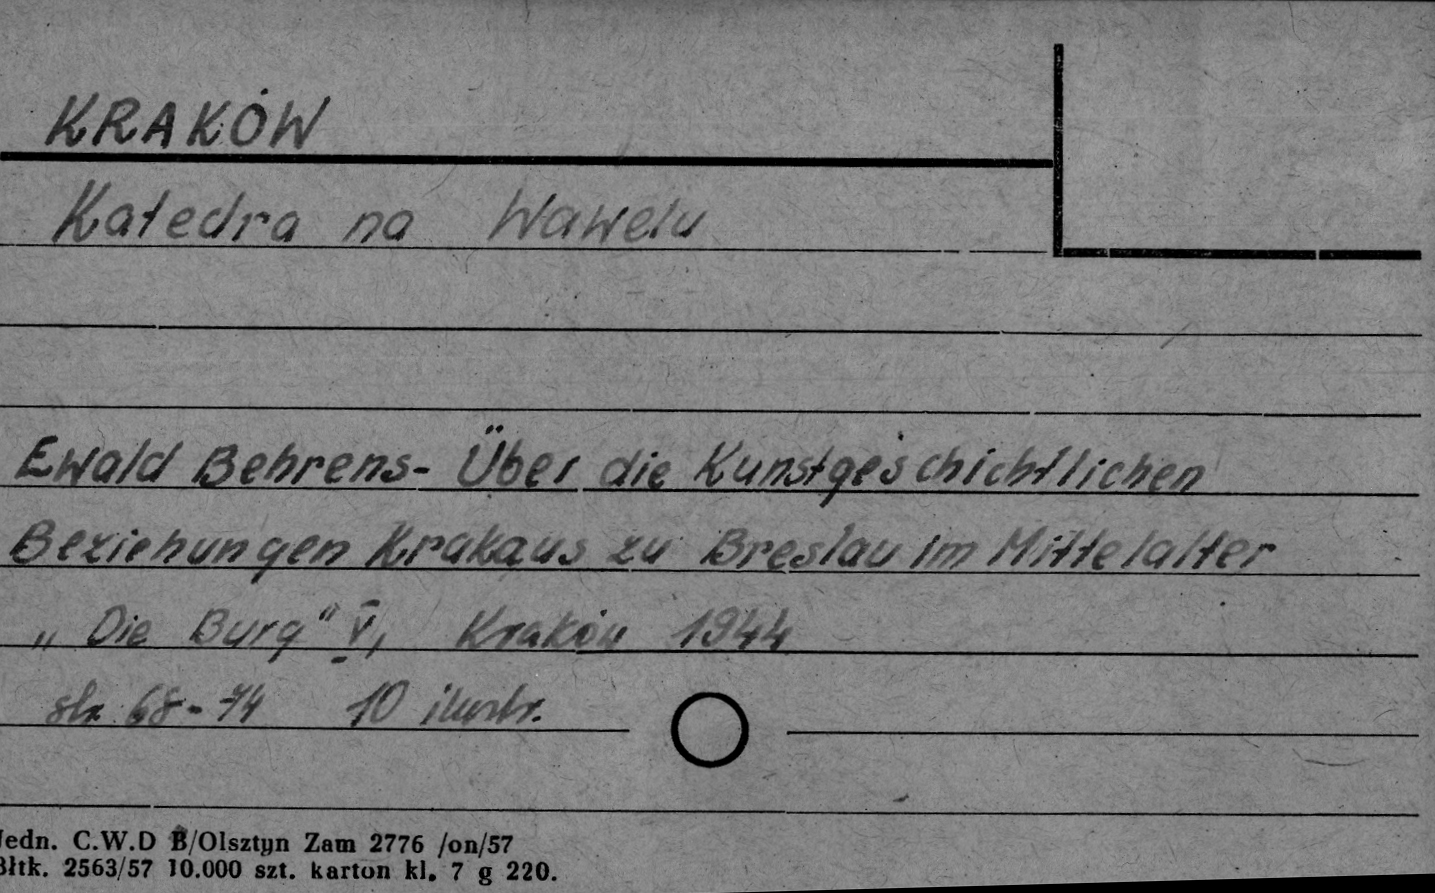 KRAKÓW
Katedra na Wawelu
Ewald Behrens - Über die Kunstgeschichtlichen
Beziehungen Krakaus zu Breslau im Mittelalter
„Die Burg" V, Kraków 1944
str 68-74 10 ilustr.
Jedn. C.W.D B/Olsztyn Zam 2776 /on/57
Bltk. 2563/57 10.000 szt. karton kl. 7 g 220.